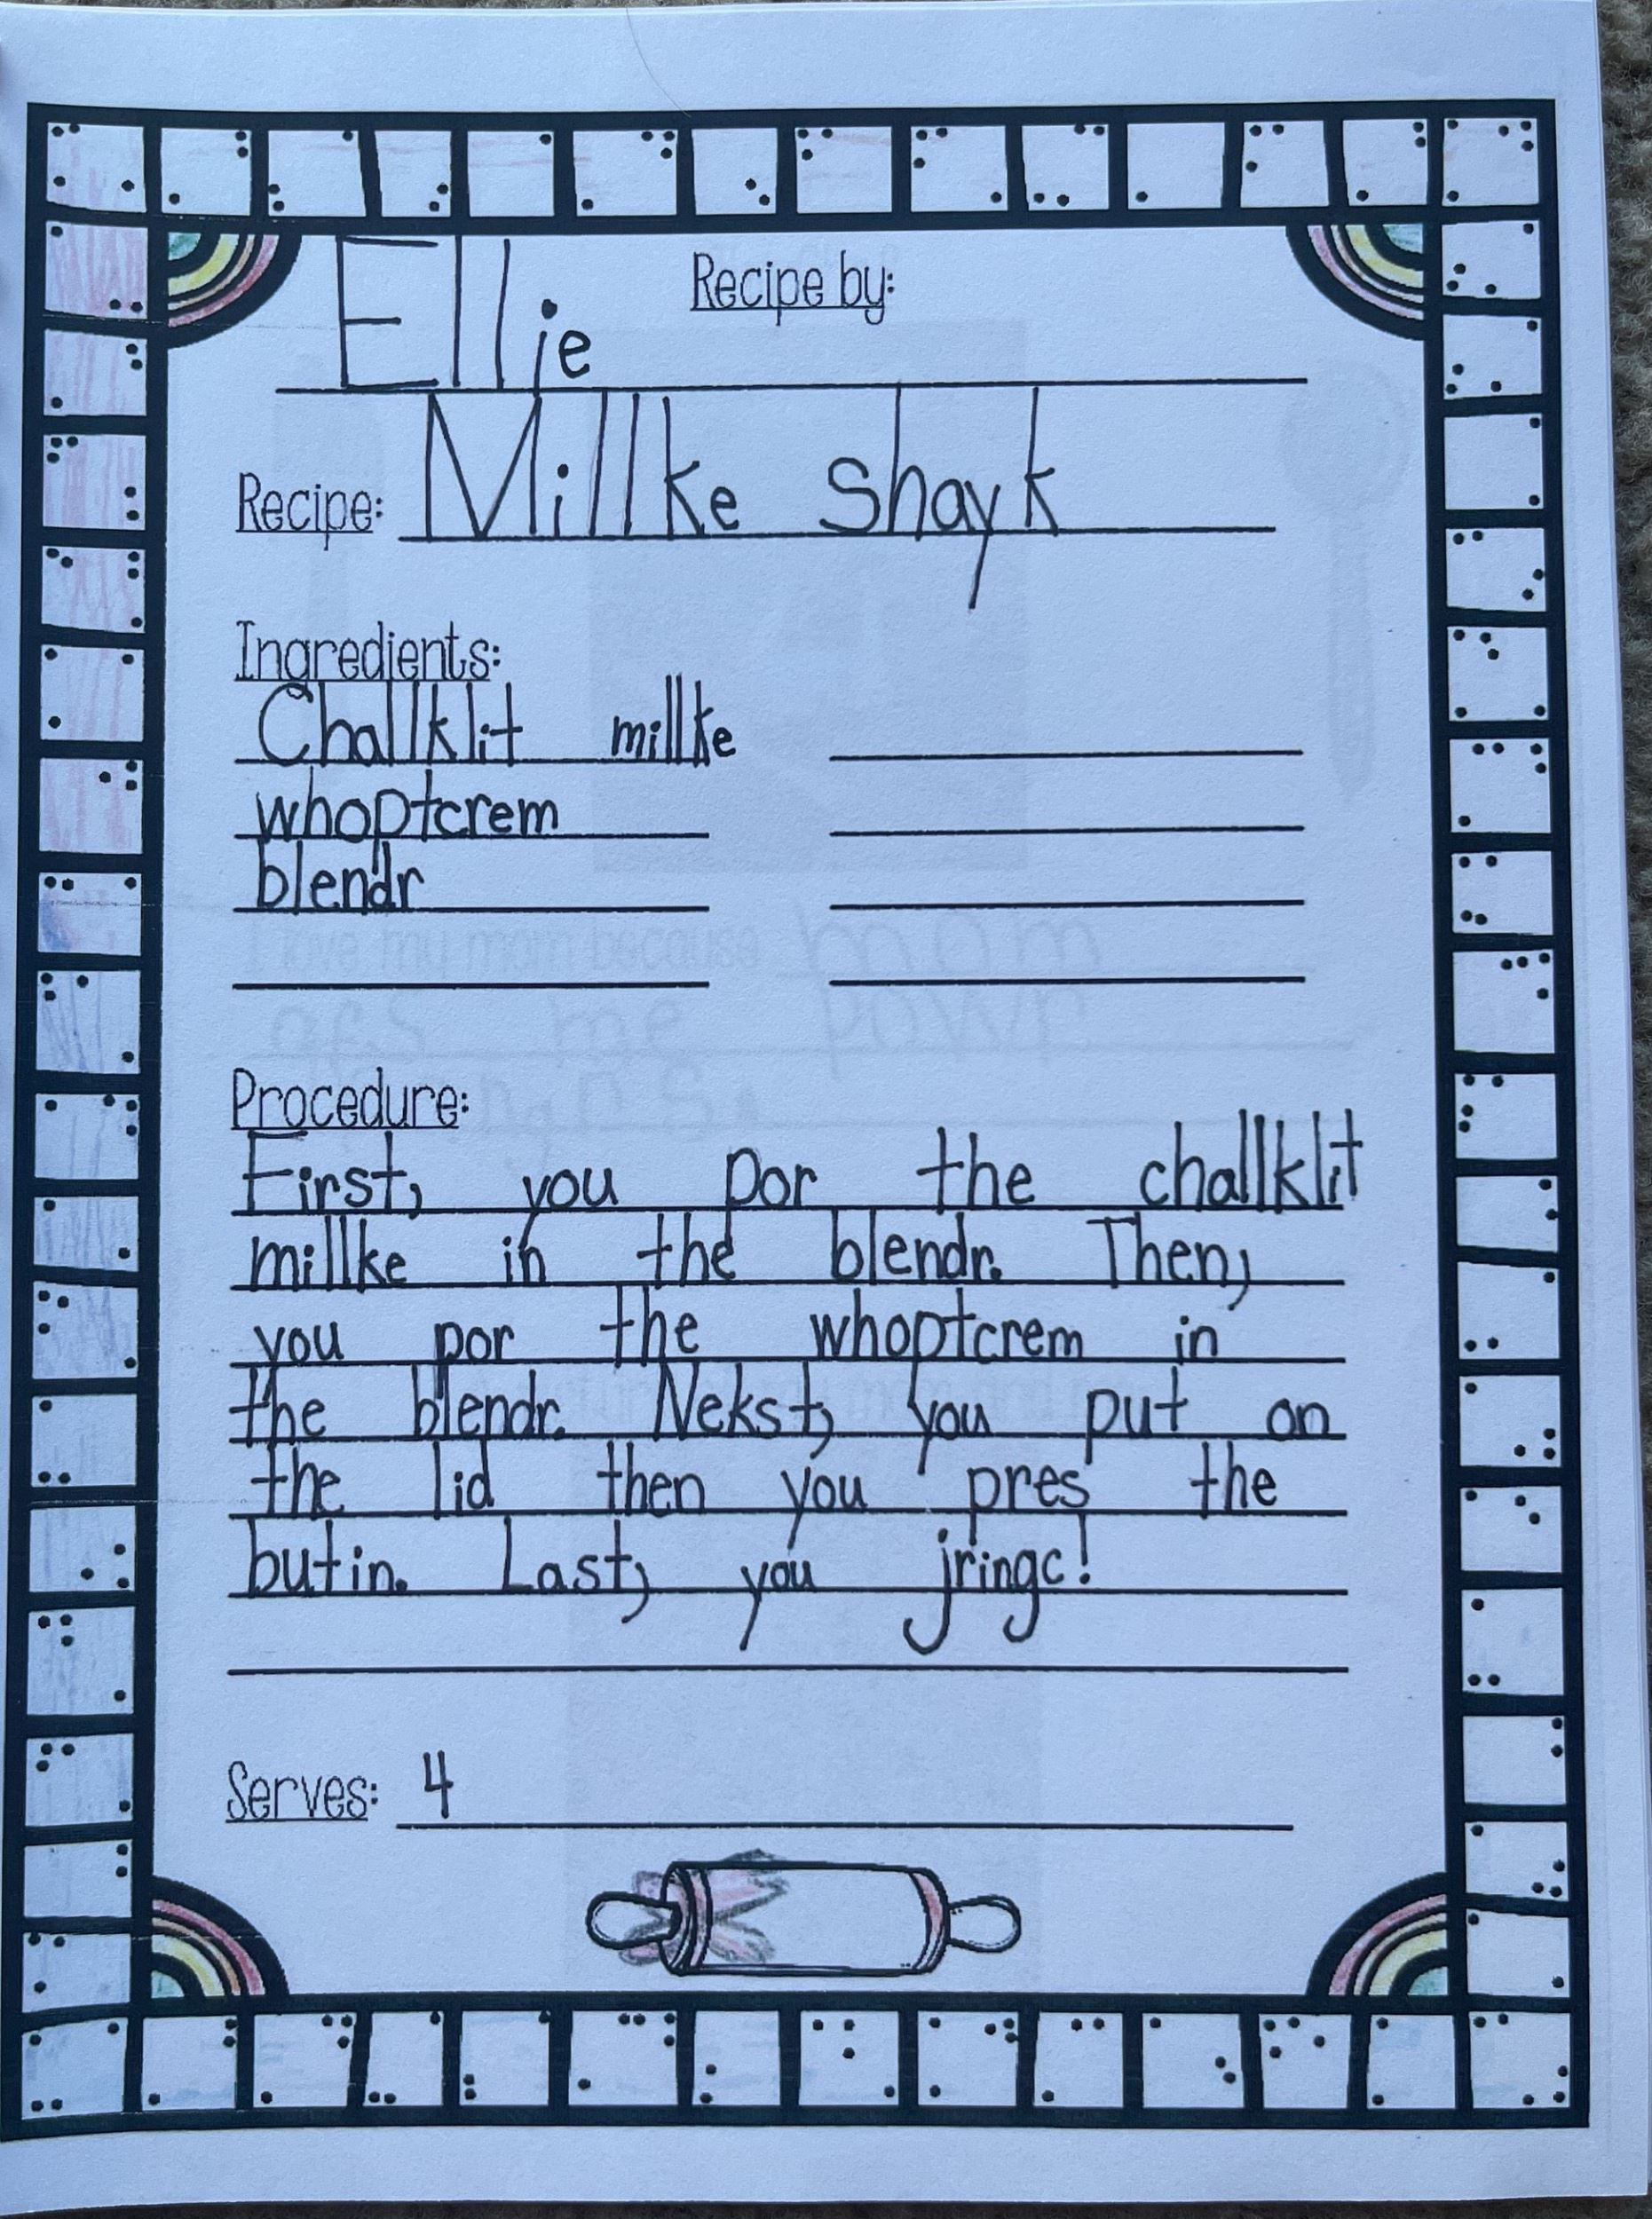 Recipe by:
Ellie
Recipe: Millke shayk
Ingredients:
Challklit millke
whoptcrem
blendr
I love my mom because mom
me powr
Procedure:
First, you por the challklit
millke in the blendr. Then,
you por the whoptcrem in
the blendr. Nekst, you put on
the lid then you pres the
butin. Last, you jringc!
Serves: 4